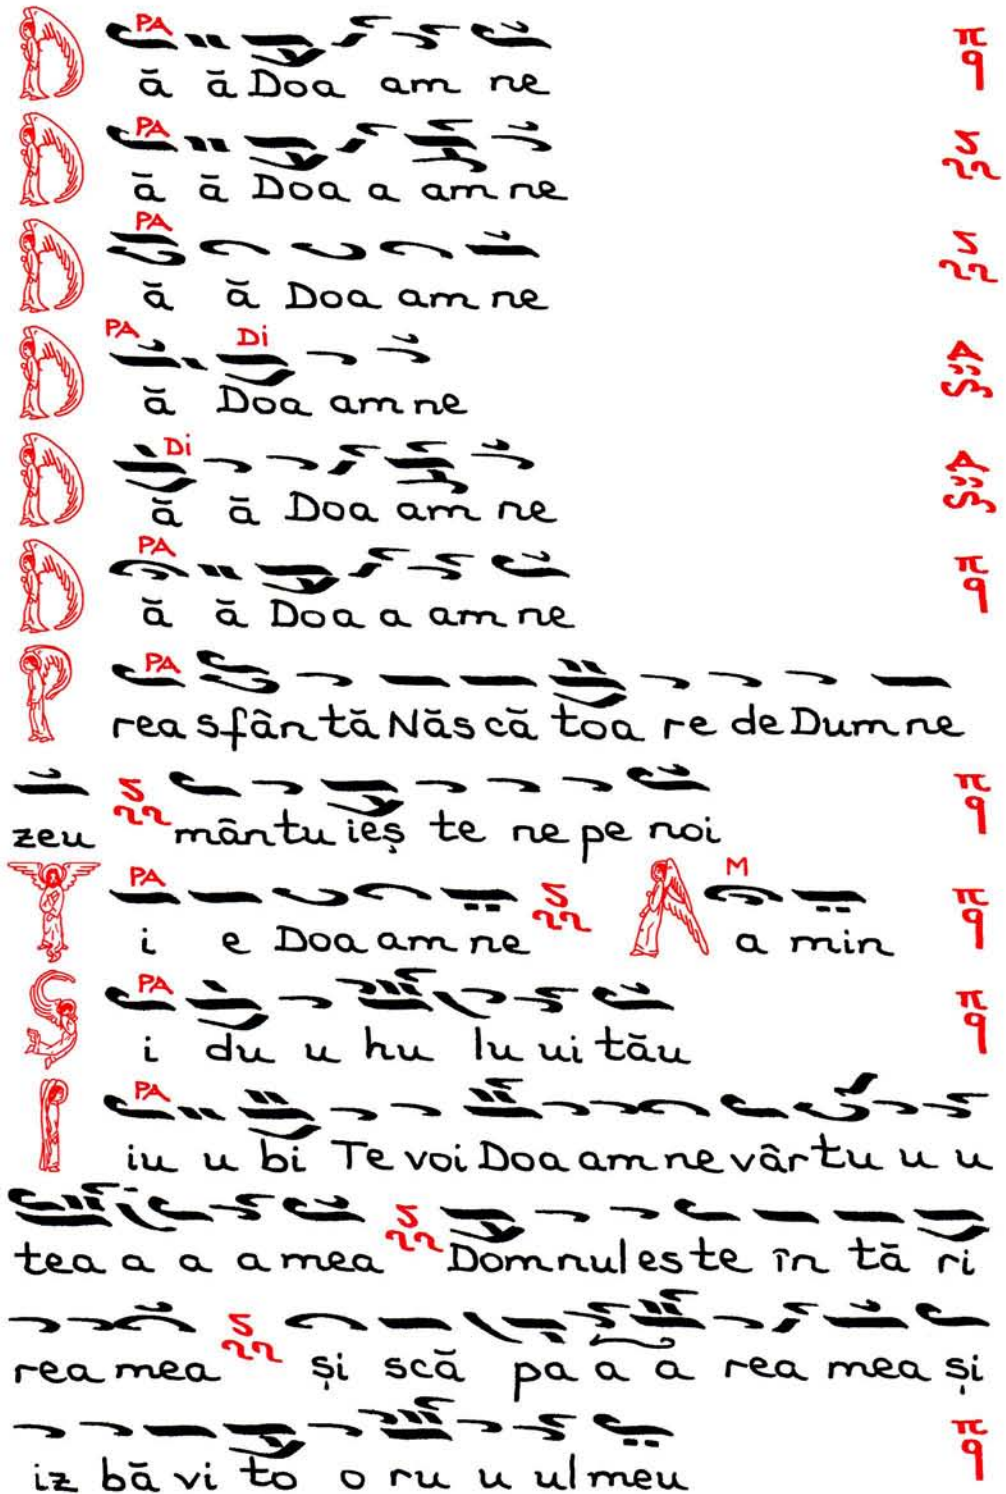 PA
D ă ă Doa am ne
PA
D ă ă Doa a am ne
PA
D ă ă Doa am ne
PA Di
D ă Doa am ne
Di
D ă ă Doa am ne
PA
D ă ă Doa a am ne
PA
P rea sfân tă Năs că toa re de Dum ne
zeu mân tu ieș te ne pe noi
PA M
Ț i e Doa am ne A a min
PA
S i du u hu lu ui tău
PA
I iu u bi Te voi Doa am ne vâr tu u u
tea a a a mea Dom nul es te în tă ri
rea mea și scă pa a a rea mea și
iz bă vi to o ru u ul meu